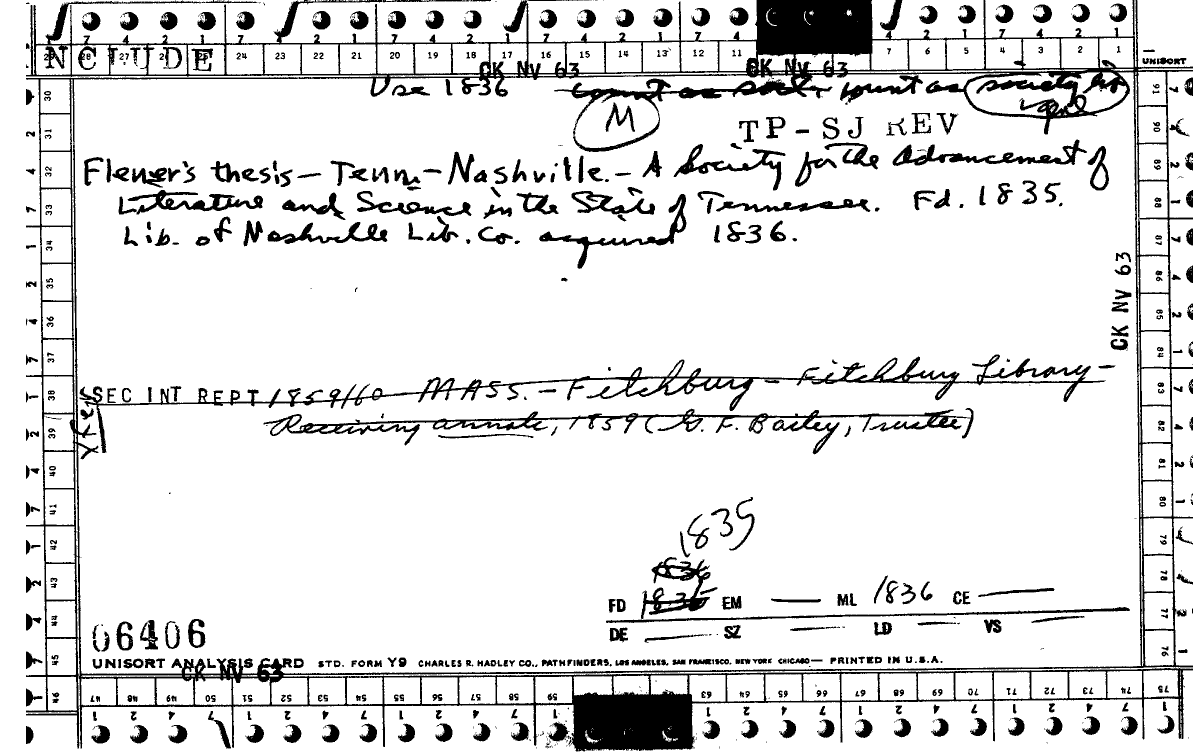 7 4 2 1 7 4 2 1 7 4 2 1 7 4 2 1 7 4 2 1
29 28 27 26 25 24 23 22 21 20 19 18 17 16 15 14 13 12 11 7 6 5 4 3 2 1
INCLUDE
UNISORT
CK NV 63 CK NV 63
Use 1836 count as society count as society
M
TP-SJ REV
Flener's thesis — Tenn. — Nashville. — A Society for the Advancement of
Literature and Science in the State of Tennessee. Fd. 1835.
Lib. of Nashville Lib. Co. acquired 1836.
CK NV 63
SEC INT REPT 1859/60 — MASS. — Fitchburg — Fitchburg Library —
Receiving annals, 1859 (G. F. Bailey, Trustee)
1835
1836
FD 1835 EM — ML 1836 CE —
DE — SZ — LD — VS —
06406
UNISORT ANALYSIS CARD STD. FORM Y9 CHARLES R. HADLEY CO., PATHFINDERS, LOS ANGELES, SAN FRANCISCO, NEW YORK CHICAGO — PRINTED IN U.S.A.
CK NV 63
30 31 32 33 34 35 36 37 38 39 40 41 42 43 44 45 46
47 48 49 50 51 52 53 54 55 56 57 58 59 63 64 65 66 67 68 69 70 71 72 73 74 75
76 77 78 79 80 81 82 83 84 85 86 87 88 89 90 91